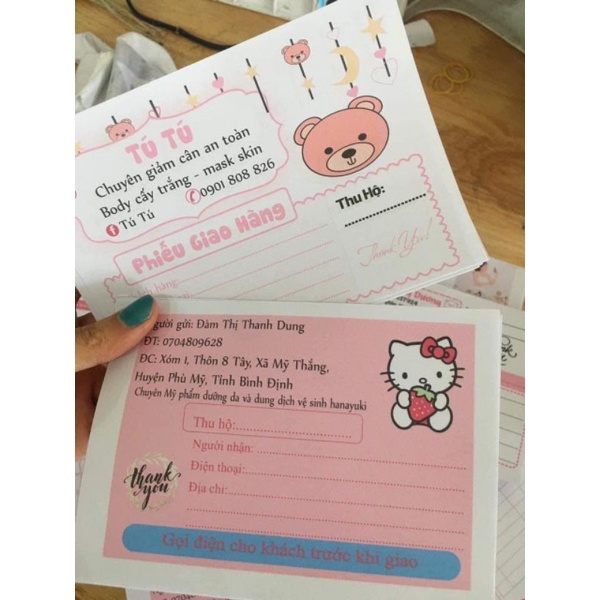 Tú Tú
Chuyên giảm cân an toàn
Body cấy trắng - mask skin
Tú Tú 0901 808 826
Phiếu Giao Hàng
Thu Hộ:
Thank You!
hàng:
Người gửi: Đàm Thị Thanh Dung
ĐT: 0704809628
ĐC: Xóm 1, Thôn 8 Tây, Xã Mỹ Thắng,
Huyện Phù Mỹ, Tỉnh Bình Định
Chuyên Mỹ phẩm dưỡng da và dung dịch vệ sinh hanayuki
Thu hộ:
Người nhận:
Điện thoại:
Địa chỉ:
thank
you
Gọi điện cho khách trước khi giao